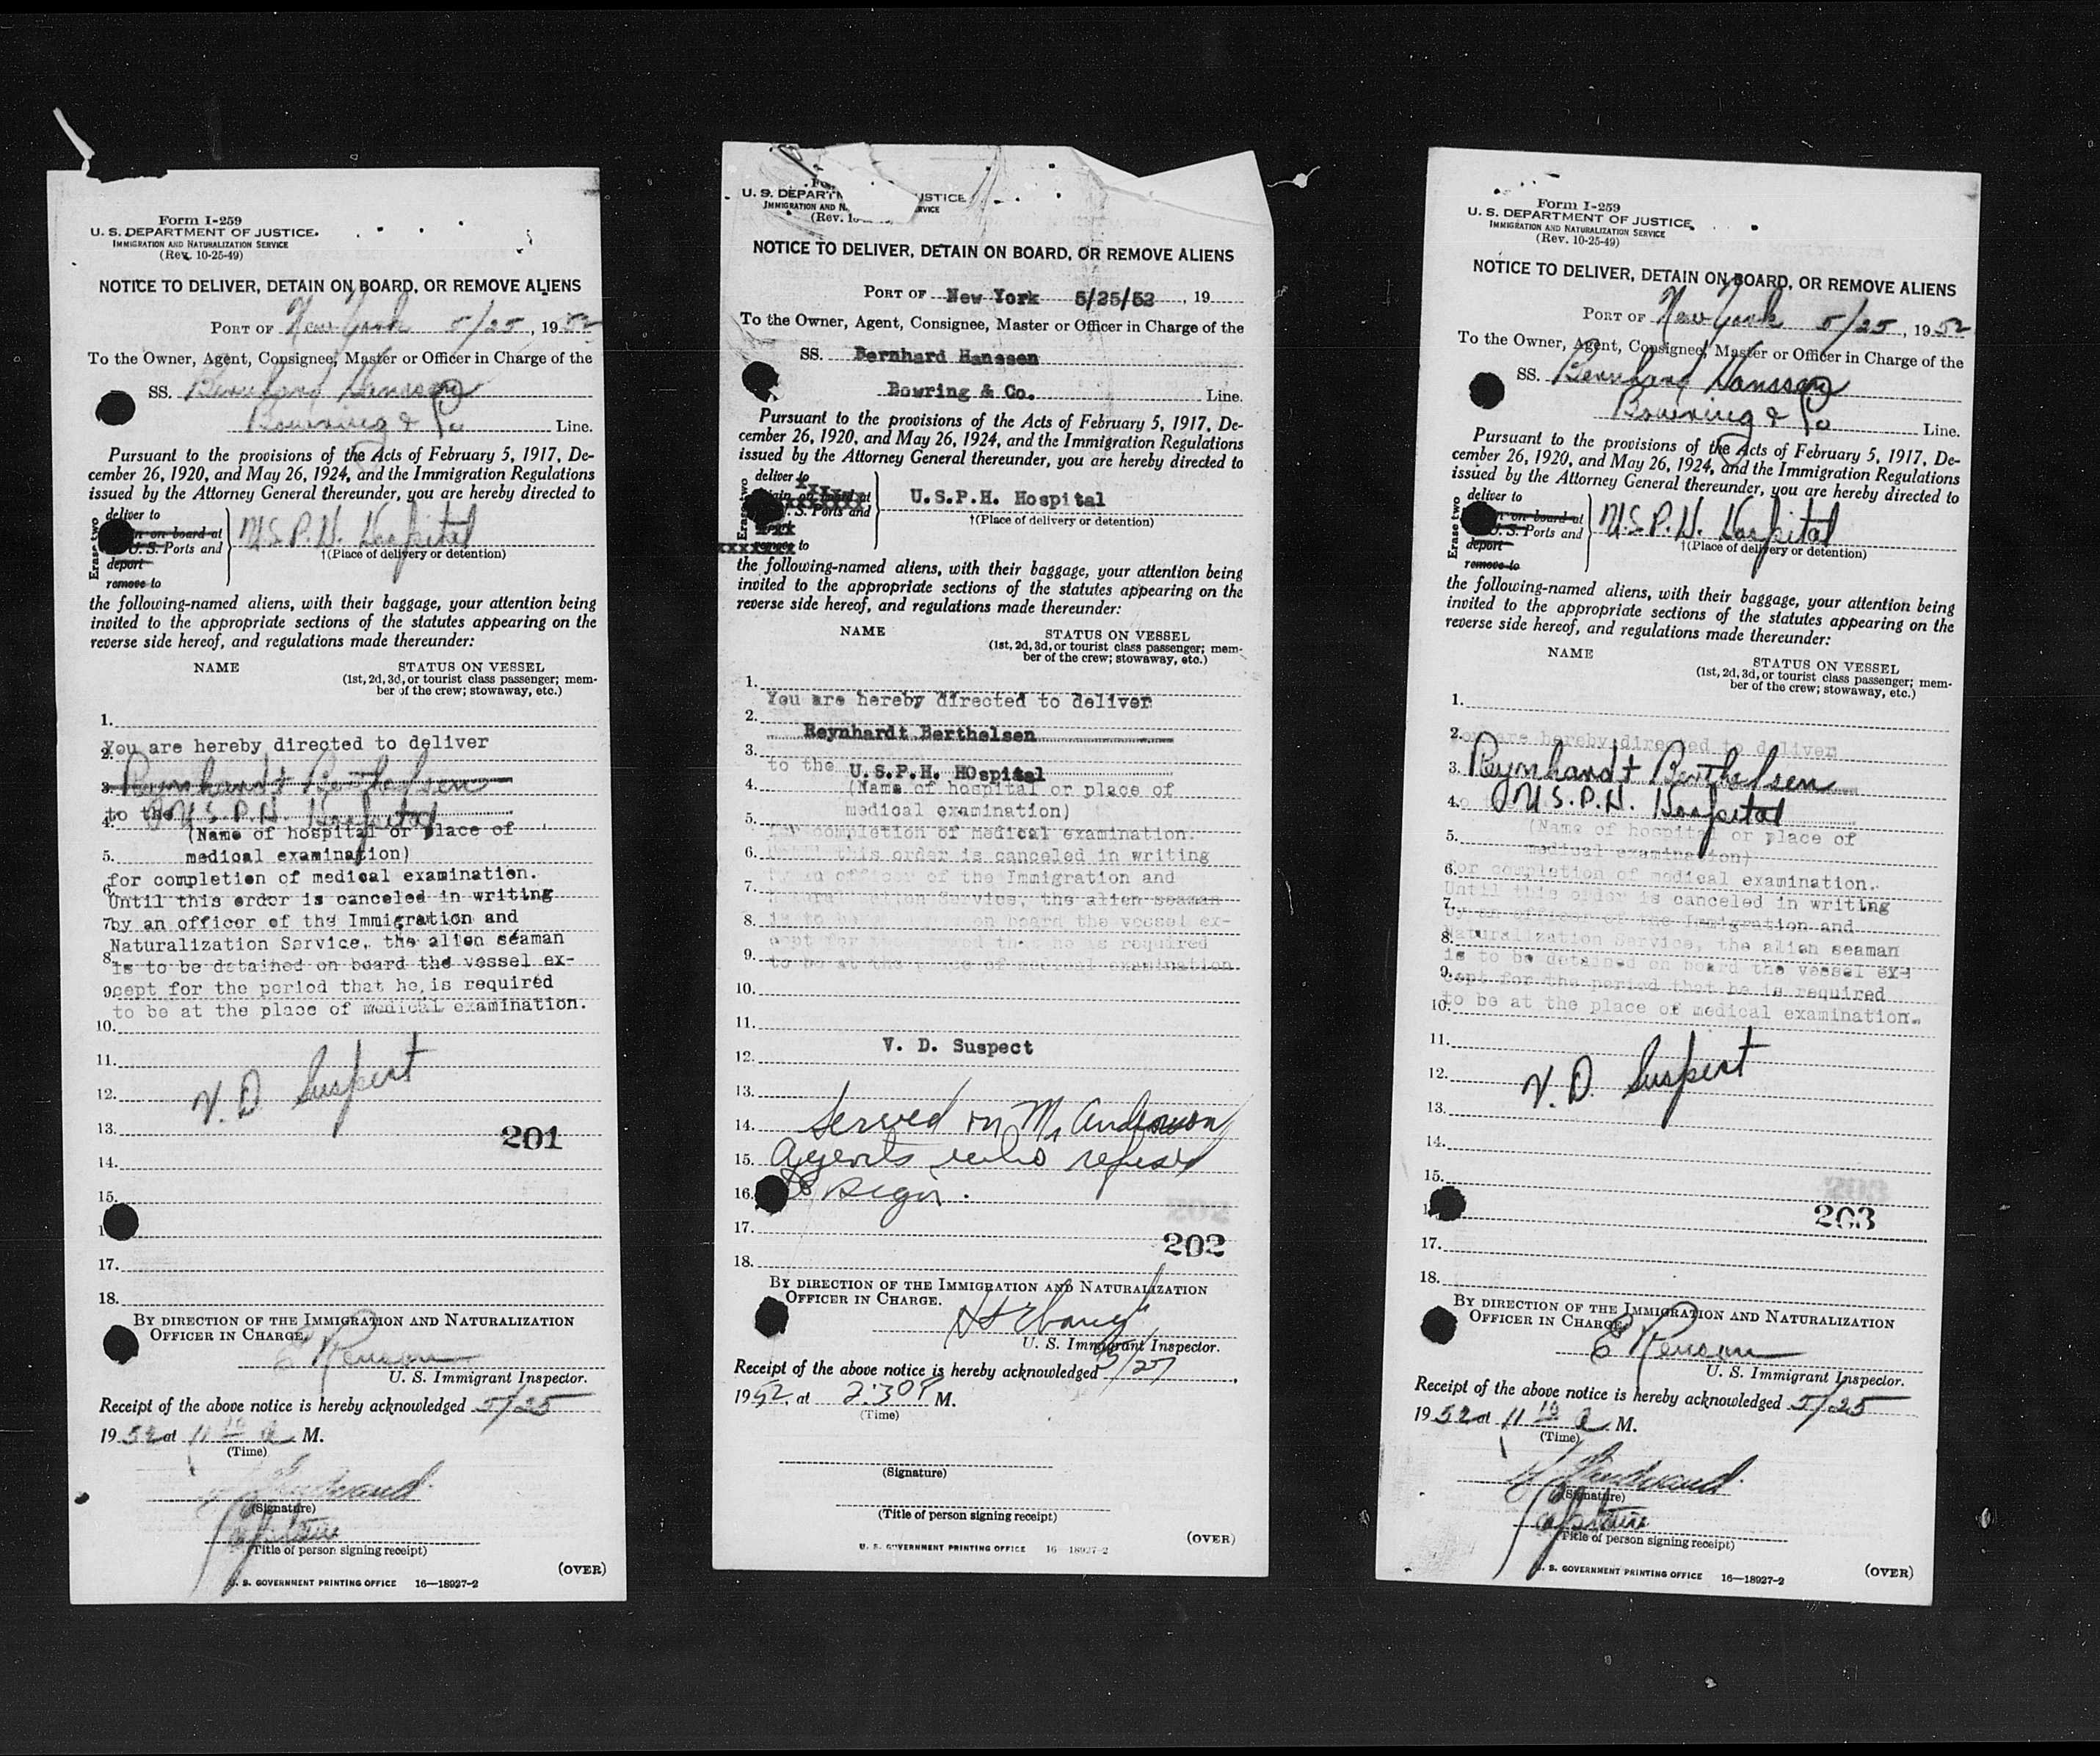 Form I-259
U. S. DEPARTMENT OF JUSTICE
IMMIGRATION AND NATURALIZATION SERVICE
(Rev. 10-25-49)
NOTICE TO DELIVER, DETAIN ON BOARD, OR REMOVE ALIENS
PORT OF New York 5/25, 1952
To the Owner, Agent, Consignee, Master or Officer in Charge of the
SS. Bernhard Hanssen
Bowring & Co Line.
Pursuant to the provisions of the Acts of February 5, 1917, De-
cember 26, 1920, and May 26, 1924, and the Immigration Regulations
issued by the Attorney General thereunder, you are hereby directed to
Erase two
deliver to
on board at
U. S. Ports and
deport
remove to
U.S.P.H. Hospital
†(Place of delivery or detention)
the following-named aliens, with their baggage, your attention being
invited to the appropriate sections of the statutes appearing on the
reverse side hereof, and regulations made thereunder:
NAME STATUS ON VESSEL
(1st, 2d, 3d, or tourist class passenger; mem-
ber of the crew; stowaway, etc.)
1.
You are hereby directed to deliver
2.
3. Reynhardt Berthelsen
to the U.S.P.H. Hospital
4.
(Name of hospital or place of
5. medical examination)
for completion of medical examination.
6.
Until this order is canceled in writing
7. by an officer of the Immigration and
Naturalization Service, the alien seaman
8.
is to be detained on board the vessel ex-
9. cept for the period that he is required
to be at the place of medical examination.
10.
11.
12. V. D Suspect
13.
201
14.
15.
1
17.
18.
BY DIRECTION OF THE IMMIGRATION AND NATURALIZATION
OFFICER IN CHARGE.
U. S. Immigrant Inspector.
Receipt of the above notice is hereby acknowledged 5/25
1952 at 11 10 a M.
(Time)
(Signature)
Captain
(Title of person signing receipt)
(OVER)
U. S. GOVERNMENT PRINTING OFFICE 16—18927-2
U. S. DEPARTM USTICE
IMMIGRATION AND N RVICE
(Rev. 10
NOTICE TO DELIVER, DETAIN ON BOARD, OR REMOVE ALIENS
PORT OF New York 5/25/52, 19
To the Owner, Agent, Consignee, Master or Officer in Charge of the
SS. Bernhard Hanssen
Bowring & Co. Line.
Pursuant to the provisions of the Acts of February 5, 1917, De-
cember 26, 1920, and May 26, 1924, and the Immigration Regulations
issued by the Attorney General thereunder, you are hereby directed to
deliver to
on board at
S. Ports and
to
U.S.P.H. Hospital
†(Place of delivery or detention)
the following-named aliens, with their baggage, your attention being
invited to the appropriate sections of the statutes appearing on the
reverse side hereof, and regulations made thereunder:
NAME STATUS ON VESSEL
(1st, 2d, 3d, or tourist class passenger; mem-
ber of the crew; stowaway, etc.)
1.
You are hereby directed to deliver
2.
Reynhardt Berthelsen
3.
to the U.S.P.H. HOspital
4. (Name of hospital or place of
medical examination)
5.
for completion of medical examination.
6. Until this order is canceled in writing
by an officer of the Immigration and
7.
Naturalization Service, the alien seaman
8. is to be detained on board the vessel ex-
cept for the period that he is required
9.
to be at the place of medical examination
10.
11.
V. D. Suspect
12.
13.
14. Served on Mr Anderson
15. Agents who refused
16. to sign.
17.
202
18.
BY DIRECTION OF THE IMMIGRATION AND NATURALIZATION
OFFICER IN CHARGE.
U. S. Immigrant Inspector.
Receipt of the above notice is hereby acknowledged 5/27
1952, at 2:30 P M.
(Time)
(Signature)
(Title of person signing receipt)
(OVER)
U. S. GOVERNMENT PRINTING OFFICE 16—18927-2
Form I-259
U. S. DEPARTMENT OF JUSTICE
IMMIGRATION AND NATURALIZATION SERVICE
(Rev. 10-25-49)
NOTICE TO DELIVER, DETAIN ON BOARD, OR REMOVE ALIENS
PORT OF New York 5/25, 1952
To the Owner, Agent, Consignee, Master or Officer in Charge of the
SS. Bernhard Hanssen
Bowring & Co Line.
Pursuant to the provisions of the Acts of February 5, 1917, De-
cember 26, 1920, and May 26, 1924, and the Immigration Regulations
issued by the Attorney General thereunder, you are hereby directed to
Erase two
deliver to
on board at
U. S. Ports and
deport
remove to
U.S.P.H. Hospital
†(Place of delivery or detention)
the following-named aliens, with their baggage, your attention being
invited to the appropriate sections of the statutes appearing on the
reverse side hereof, and regulations made thereunder:
NAME STATUS ON VESSEL
(1st, 2d, 3d, or tourist class passenger; mem-
ber of the crew; stowaway, etc.)
1.
2.
You are hereby directed to deliver
3. Reynhardt Berthelsen
4. to U.S.P.H. Hospital
(Name of hospital or place of
5.
medical examination)
6. for completion of medical examination.
Until this order is canceled in writing
7.
by an officer of the Immigration and
8.
Naturalization Service, the alien seaman
is to be detained on board the vessel ex-
9. cept for the period that he is required
10. to be at the place of medical examination.
11.
12. V. D. Suspect
13.
14.
15.
203
17.
18.
BY DIRECTION OF THE IMMIGRATION AND NATURALIZATION
OFFICER IN CHARGE.
U. S. Immigrant Inspector.
Receipt of the above notice is hereby acknowledged 5/25
1952 at 11 10 a M.
(Time)
(Signature)
Captain
(Title of person signing receipt)
(OVER)
U. S. GOVERNMENT PRINTING OFFICE 16—18927-2